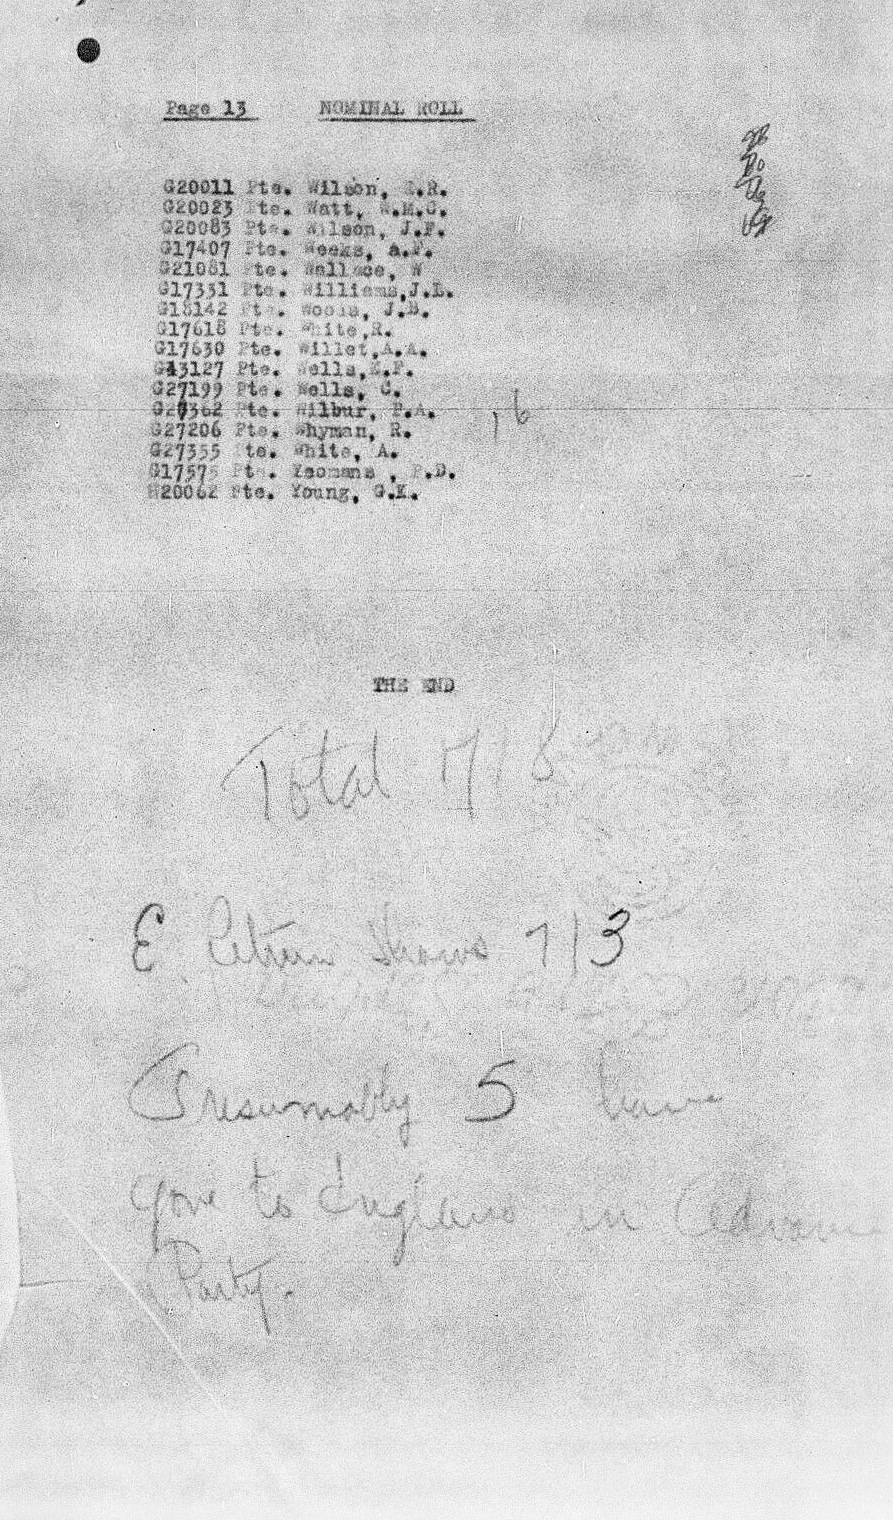 Page 13 NOMINAL ROLL
G20011 Pte. Wilson, .R.
G20023 Pte. Watt, W.M.C.
G20083 Pte. Wilson, J.F.
G17407 Pte. Weeks, A.F.
G21081 Pte. Wallace, W
G17331 Pte. Williams,J.L.
G18142 Pte. Woods, J.B.
G17618 Pte. White,R.
G17630 Pte. Willet,A.A.
G43127 Pte. Wells, .F.
G27199 Pte. Wells, C.
Pte. Wilbur, P.A.
G27206 Pte. Whyman, R.
G27355 Pte. White, A.
G17575 Pte. Yeomans , P.D.
20062 Pte. Young, G.K.
16
THE END
Total 718
E Return Shows 713
Presumably 5 have
gone to England in Advance
Party.